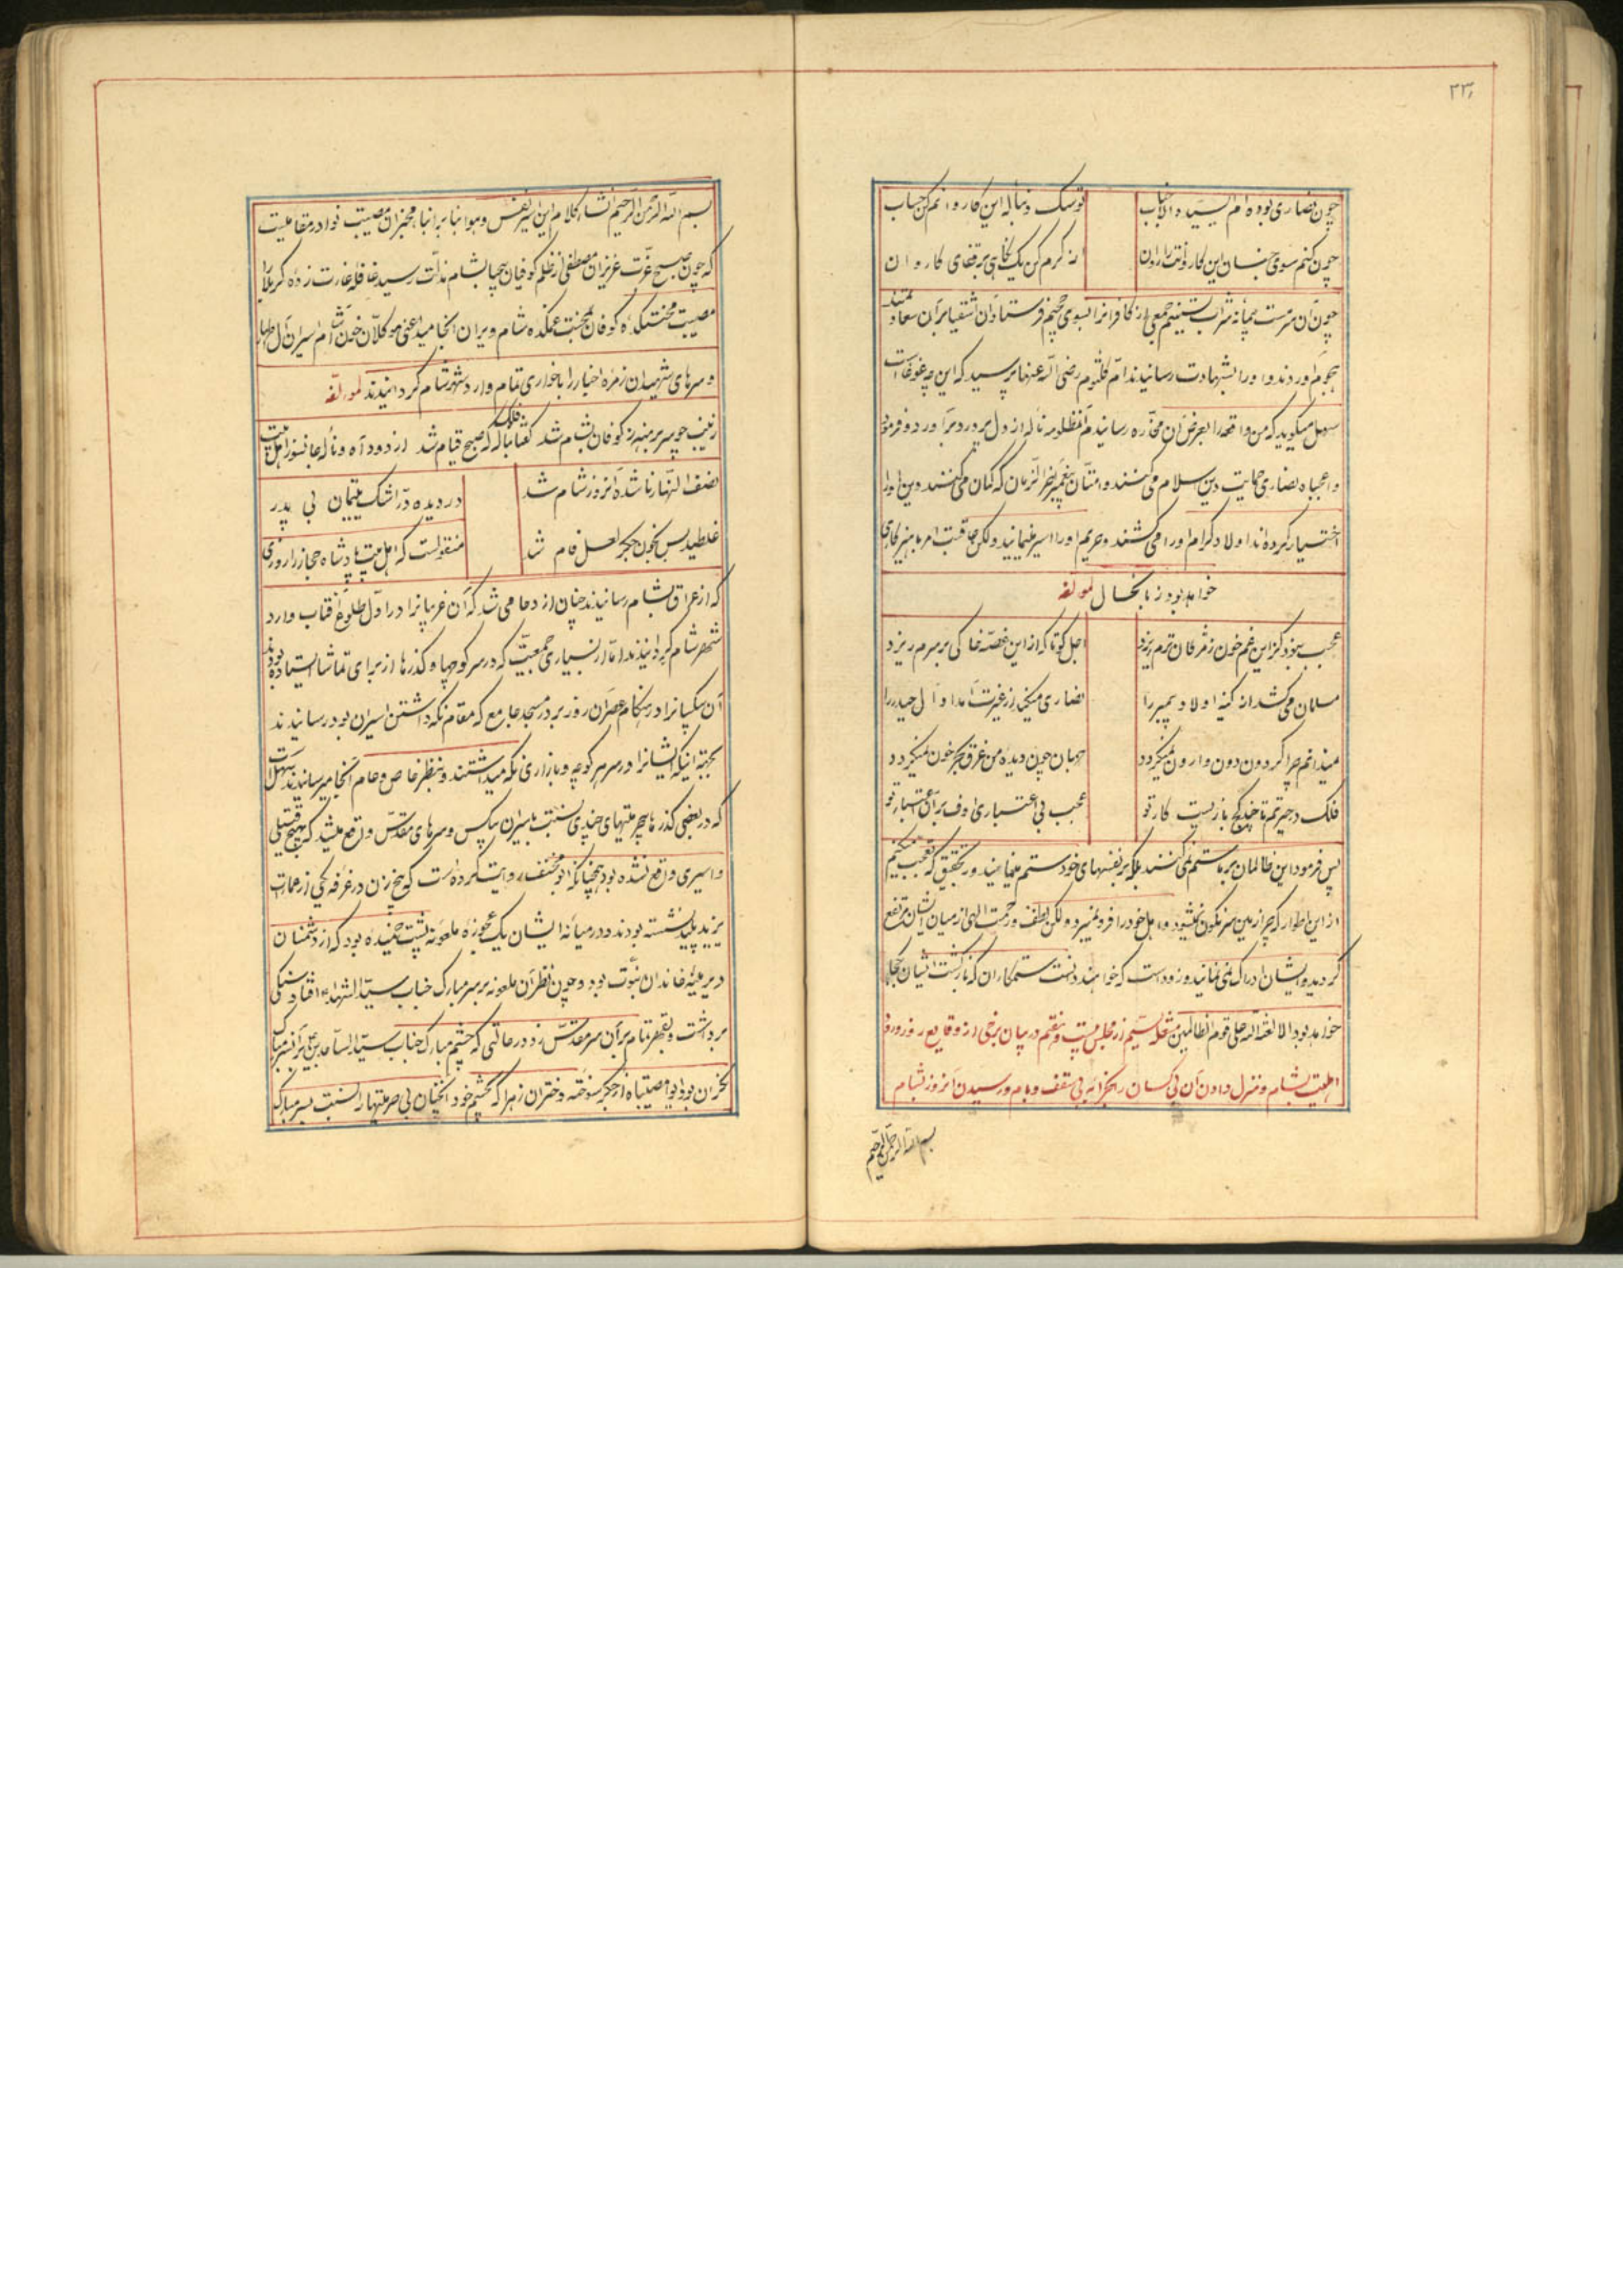 ۲۳۶
چون نصاری بوده ام السیده الاجناب توسک دنباله این کاروانم کن حساب
چون کنم سوی جنان این کاروانت را روان از کرم کن یک نگاهی بر قفای کاروان
چون آن سرمست پیمانه شراب تسنیم جمعی از کافرانرا بسوی جحیم فرستاد آن اشقیا بر آن سعادتمند
هجوم آوردند و او را بشهادت رسانیدند ام کلثوم رضی الله عنها پرسید که این چه غوغاست
سهل میگوید که من واقعه را بعرض آن مخدره رسانیدم آن مظلومه ناله از دل پر درد برآورد و فرمود
واعجباه نصاری حمایت دین اسلام می کنند و امتان پیغمبر آخر الزمان که گمان می کنند دین او را
اختیار کرده اند اولاد کرام او را می کشند و حریم او را اسیر مینمایند ولکن عاقبت امر با پرهیزکاری
خواهد بود زبانحال لمولفه
عجب نبود کز این غم خون ز مژگان ترم ریزد اجل کو تا که از این غصه خاکی بر سرم ریزد
مسلمان می کشد از کینه اولاد پیمبر را نصاری میکند از غیرت امداد آل حیدر را
نمیدانم چرا گردون دون وارون نمیگردد جهان چون دیده من غرق بحر خون نمیگردد
فلک در حیرتم تا چند کج بازیست کار تو عجب بی اعتباری اوف بر این اعتبار تو
پس فرمود این ظالمان بر ما ستم نمی کنند بلکه بر نفسهای خود ستم مینمایند و بتحقیق که تعجب میکنیم
از این اطوار که چرا زمین سرنگون نمیشود و اهل خود را فرو نمیبرد ولکن لطف و رحمت الهی از میان ایشان مرتفع
گردیده و ایشان ادراک نمی نمایند و زود است که خواهند دانست ستمکاران که بازگشت ایشان بکجا
خواهد بود الا لعنة الله علی قوم الظالمین مجلس سیم از مجلس بیست و هفتم در بیان برخی از وقایع روز ورود
اهلبیت بشام و منزل دادن آن بی کسان را بخرابه بی سقف و بام و رسیدن آنروز بشام
بسم الله الرحمن الرحیم
بسم الله الرحمن الرحیم انشاء کلام این اسیر نفس و هوا بنا به انباء مخبران مصیبت نوا در مقامیست
که چون صبح عزت عزیزان مصطفی از ظلم کوفیان بیحیا بشام مذلت رسید قافله غارت زده کربلا
مصیبت محنتکده کوفان بمحنت غمکده شام ویران انجامید اعنی موکلان خون آشام اسیران آل اطهار
و سرهای شهیدان زمره اخیار را با خواری تمام وارد شهر شام کردانیدند لمولفه
زینب چو سر برهنه ز کوفان بشام شد گفتا بناله فلک که صبح قیام شد از دود آه و ناله جانسوز اهل بیت
نصف النهار ناشده آنروز شام شد در دیده در اشک یتیمان بی پدر
غلطید بس بخون جگر لعل فام شد منقولست که اهل بیت پادشاه حجاز را روزی
که از عراق بشام رسانیدند چنان ازدحام می شد که آن غریبانرا در اول طلوع آفتاب وارد
شهر شام گردانیدند اما از بسیاری جمعیت که در سر کوچها و گذرها از برای تماشا ایستاده بودند
آن بیکسانرا در هنگام عصر آن روز بر در مسجد جامع که مقام نگه داشتن اسیران بود رسانیدند
بجهة اینکه ایشانرا در سر هر کوچه و بازاری نگه میداشتند و بنظر خاص و عام آنجا میرسانیدند
که در بعضی گذرها بیحرمتیهای چندی نسبت باسیران بیکس و سرهای مقدس واقع میشد که بهیچ قتیلی
و اسیری واقع نشده بود همچنانکه ابو مخنف روایت کرده است که پنج زن در غرفه یکی از عمارات
یزید پلید نشسته بودند و در میانه ایشان یک عجوزه ملعونه پشت خمیده بود که از دشمنان
دیرینه خاندان نبوت بود و چون نظر آن ملعونه بر سر مبارک جناب سید الشهداء افتاد سنگی
برداشت و بقهر تمام بر آن سر مقدس زد در حالتی که چشم مبارک جناب سید الساجدین بر آن سر مبارک
نگران بود وا مصیبتاه از جگر سوخته دختران زهرا که بچشم خود آنچنان بی حرمتیها را نسبت بسر مبارک